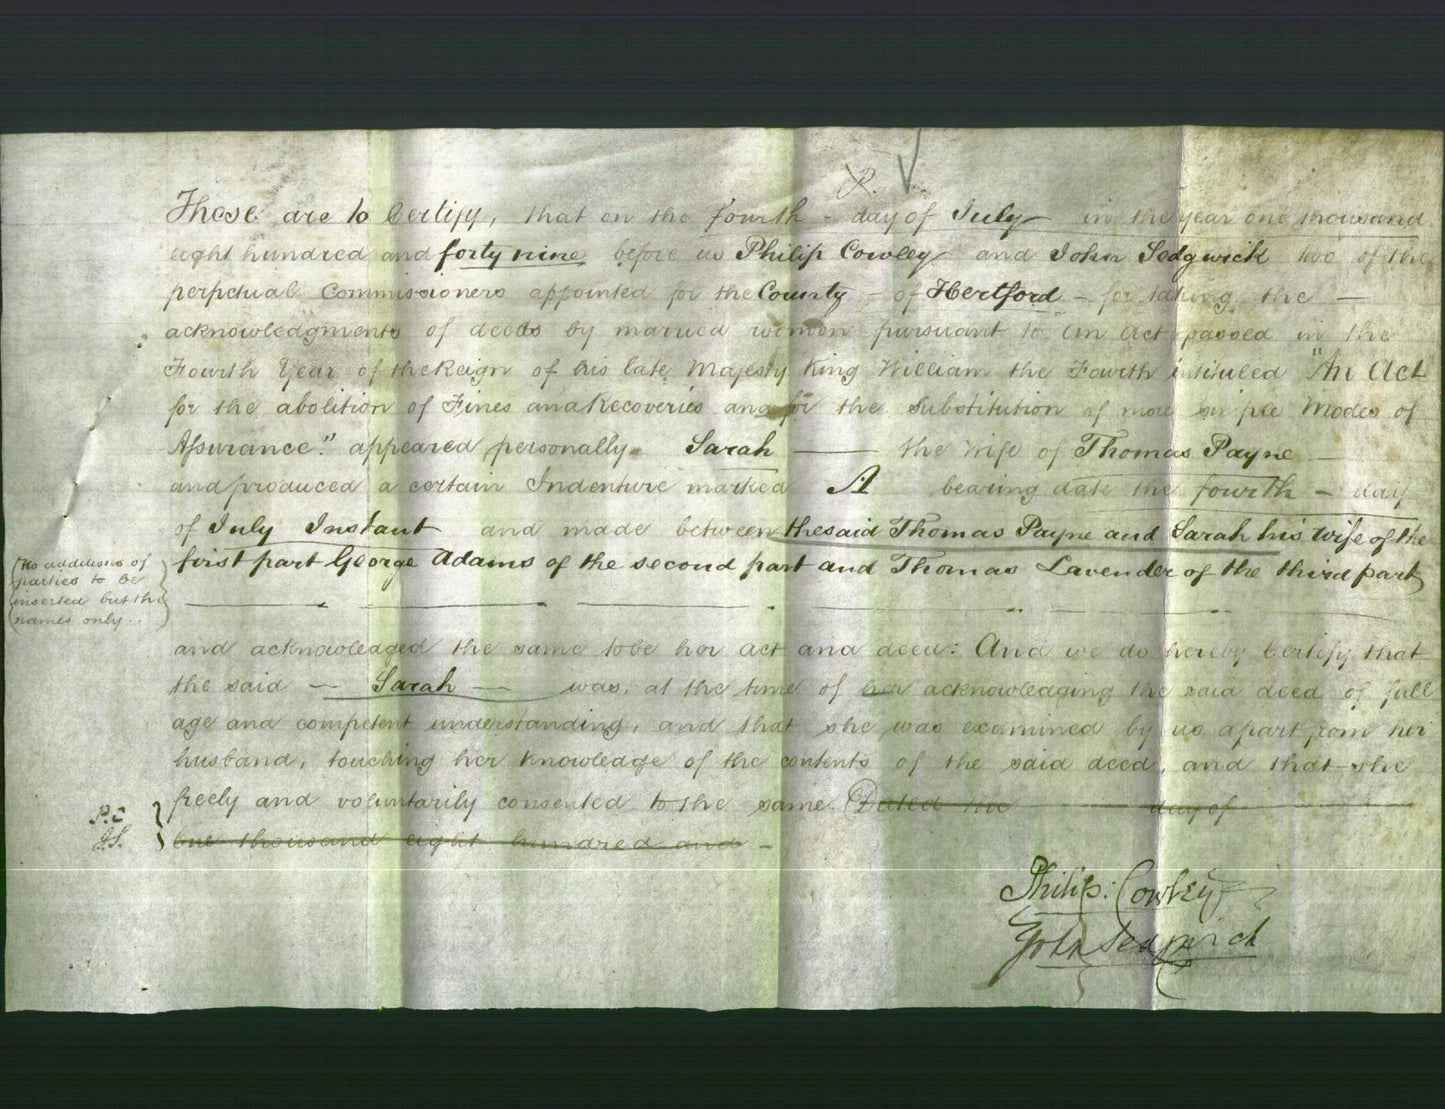 R.
These are to Certify, that on the fourth - day of July in the year one thousand
eight hundred and forty nine before us Philip Cowley and John Sedgwick two of the
perpetual Commissioners appointed for the County - of Hertford - for taking the -
acknowledgments of deeds by married women pursuant to an Act passed in the
Fourth Year of the Reign of his late Majesty King William the Fourth intituled "An Act
for the abolition of Fines and Recoveries and for the Substitution of more simple Modes of
Assurance." appeared personally Sarah - the Wife of Thomas Payne -
and produced a certain Indenture marked A bearing date the fourth - day
of July Instant and made between the said Thomas Payne and Sarah his wife of the
first part George Adams of the second part and Thomas Lavender of the third part
(No additions of
parties to be
inserted but the
names only..
and acknowledged the same to be her act and deed: And we do hereby Certify that
the said - Sarah - was, at the time of her acknowledging the said deed of full
age and competent understanding, and that she was examined by us apart from her
husband, touching her knowledge of the contents of the said deed, and that she
freely and voluntarily consented to the same. Dated the day of
one thousand eight hundred and -
P.C
J.S.
Philip: Cowley
John Sedgwick